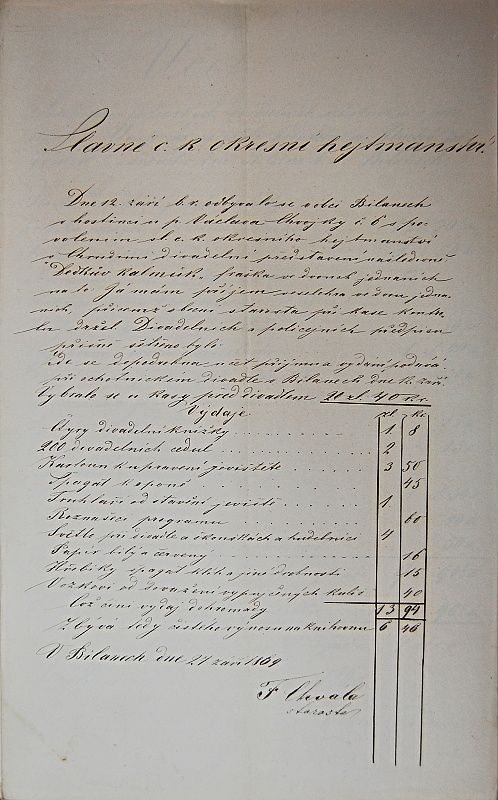 Slavné c. k. okresní hejtmanství!
Dne 12. září b. r. odbývalo se v obci Bílanech
v hostinci u p. Václava Chvojky č. 6 s po-
volením sl. c. k. okresního hejtmanství
v Chrudimi divadelní představení následovně
Dědkův kalmuk, fraška ve dvouch jednáních
na to: Já mám příjem veselohra v jedna-
ních, přičemž obecní starosta při kase kontr-
lu držel. Divadelních a policejních předpisu
přísně šetřeno bylo.
Zde se dopodrobna účet příjmu a vydání podává
při ochotnickém divadle v Bilanech dne 12. září.
Vybralo se u kasy před divadlem 20 zl. 40 kr.
Výdaje zl. kr.
divadelní knížky . . . 1 8
200 divadelních cedul . . . 2
Kartoun k upravení jeviště . . . 3 50
Špagát k oponě . . . 45
Truhláři od stavění jeviště . . . 1
Roznašeči programu . . . 60
Světlo při divadle a zkouškách a hudebníci 4
Papír bílý a červený . . . 16
Hřebíky špagat klih a jiné drobnosti 15
Vozkovi od dovažení vypujčených kulis 40
Což činí výdaj dohromady 13 94
Zbývá tedy čistého výnosu na knihovnu 6 46
V Bilanech dne 21 září 1869
F Chvála
starosta